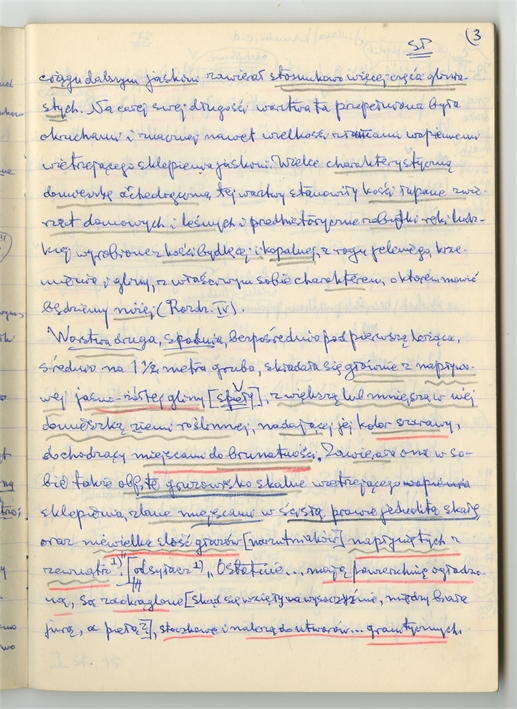 (3
SP
ciągu dalszym jaskini zawierał stosunkowo więcej części glinia-
stych. Na całej swej długości warstwa ta przepełniona była
okruchami i znacznej nawet wielkości złamami wapiennemi
wietrzejącego sklepienia jaskini. Wielce charakterystyczną
domieszkę archeologiczną tej warstwy stanowiły kości łupane zwie-
rząt domowych i leśnych i przedhistoryczne zabytki ręki ludz-
kiej wyrobione z kości bydlęcej i kopalnej, z rogu jeleniego, krze-
mienia i gliny, z właściwym sobie charakterem, o którem mówić
będziemy niżej (Rozdz. IV).
Warstwa druga, spodnia, bezpośrednio pod pierwszą leżąca,
średnio na 1 1/2 metra gruba, składała się głównie z napływo-
wej jasno-żółtej gliny [spęły], z większą lub mniejszą w niej
domieszką ziemi roślinnej, nadającej jej kolor szarawy,
dochodzący miejscami do brunatności. Zawierała ona w so-
bie także obfite gruzowisko skalne wietrzejącego wapienia
sklepienia, zlane miejscami w ścisłą prawie jednolitą skałę,
oraz niewielką ilość głazów [narzutniaków] napłyniętych z
zewnątrz 1)". [odsyłacz 1) "Ostatnie... mają powierzchnię ogładzo-
ną, są zaokrąglone [skąd się wzięły na wysoczyźnie, między białą
jurą, a pełzą?], stoczkowe i należą do utworów... granitycznych.